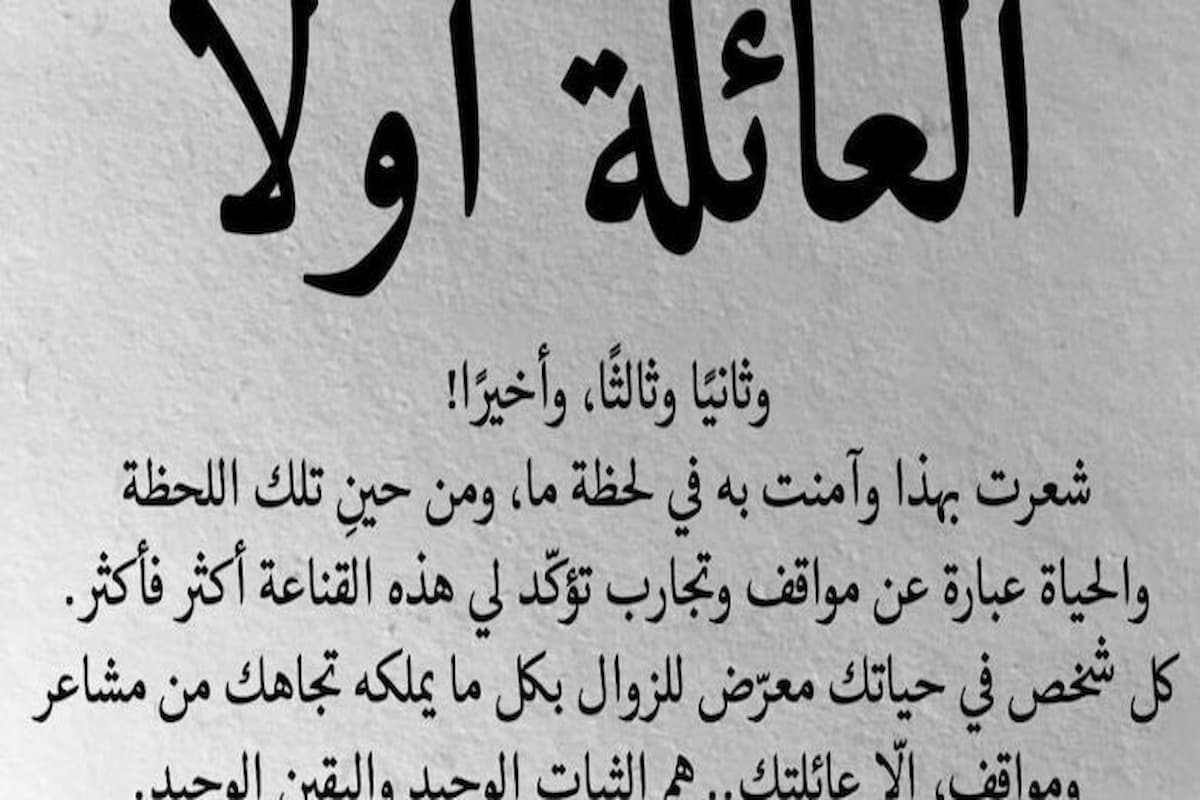 العائلة أولًا
وثانيًا وثالثًا، وأخيرًا!
شعرت بهذا وآمنت به في لحظة ما، ومن حينِ تلك اللحظة
والحياة عبارة عن مواقف وتجارب تؤكّد لي هذه القناعة أكثر فأكثر.
كل شخص في حياتك معرّض للزوال بكل ما يملكه تجاهك من مشاعر
ومواقف، إلّا عائلتك.. هم الثبات الوحيد واليقين الوحيد.